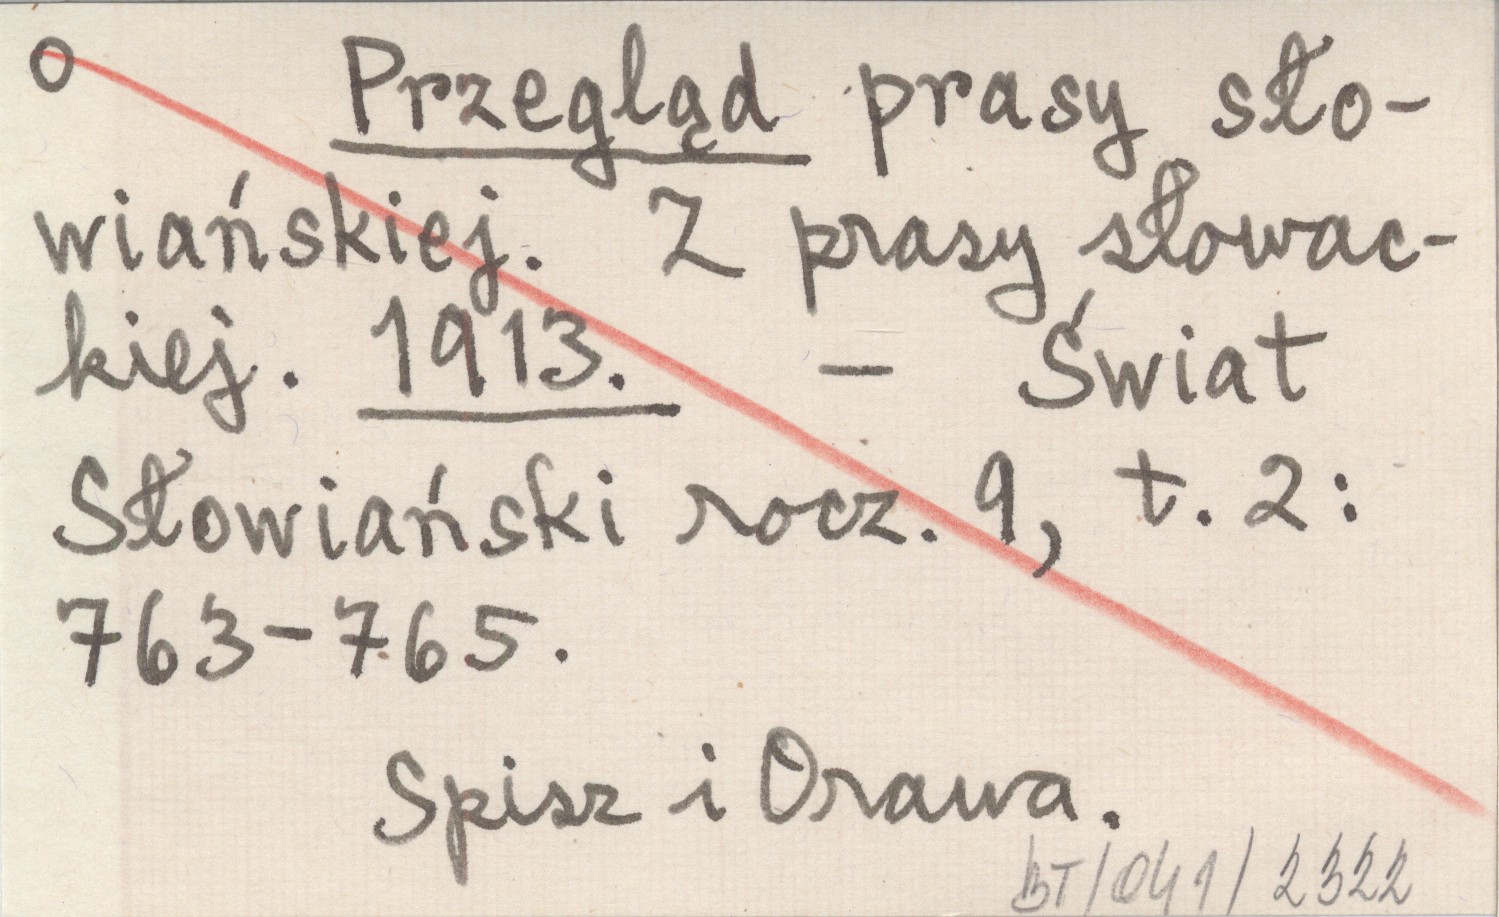 O Przegląd prasy sło-
wiańskiej. Z prasy słowac-
kiej. 1913. – Świat
Słowiański rocz. 9, t. 2:
763-765.
Spisz i Orawa.
BT/041/2322